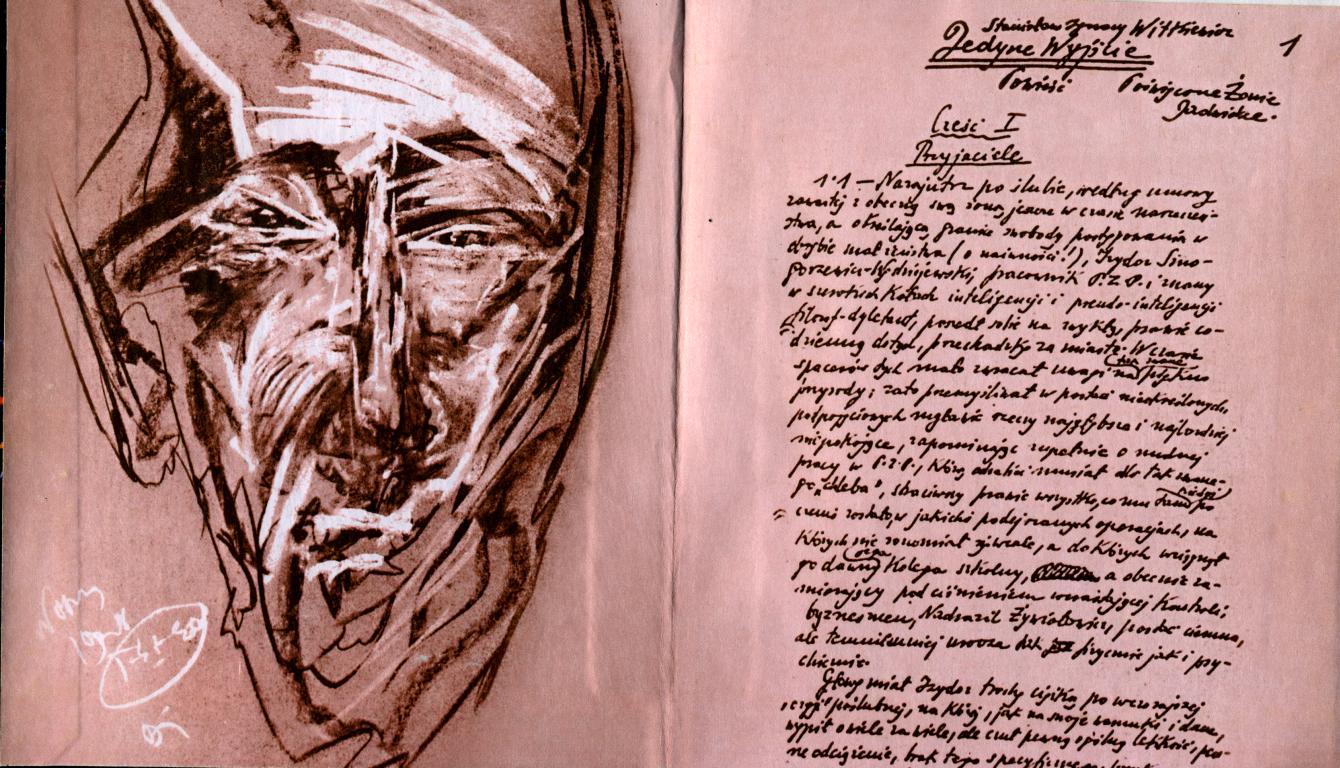 Stanisław Ignacy Witkiewicz
Jedyne Wyjście
1
Powieść
Poświęcone Żonie
Jadwidze.
Część I
Przyjaciele
1·1 — Nazajutrz po ślubie, według umowy
zawartej z obecną swą żoną jeszcze w czasie narzeczeń-
stwa, a określającej prawie swobody postępowania w
obrębie małżeństwa (o naiwności!), Izydor Smo-
gorzewicz-Wędziejewski, pracownik P.Z.P. i znany
w szerokich kołach inteligencji i pseudo-inteligencji
filozof-dyletant, poszedł sobie na zwykłą, prawie co-
dzienną dotąd, przechadzkę za miasto. W czasie
spacerów tych mało zwracał uwagi na tak zwane piękno
przyrody; zato przemyśliwał w postaci nieokreślonych,
półpojęciowych mgławic rzeczy najgłębsze i najbardziej
niepokojące, zapominając zupełnie o nudnej
pracy w P.Z.P., którą musiał dla tak zwane-
go „chleba", straciwszy prawie wszystko, co mu po
został w jakichś podejrzanych operacjach, na
których się nie rozumiał, a do których wciągnął
go dawny kolega szkolny, a obecnie za-
mierający pod ciśnieniem wzrastającej kontroli
byznesmen, Nadrazil Żywiołowicz, postać ciemna,
ale fizycznie jak i psy-
chicznie.
Głowę miał Izydor trochę ciężką po wczorajszej
poślubnej, na której, jak na swoje warunki i dane,
wypił o wiele za wiele, ale czuł pewną ogólną lekkość, pew-
ne odciążenie, brak tego